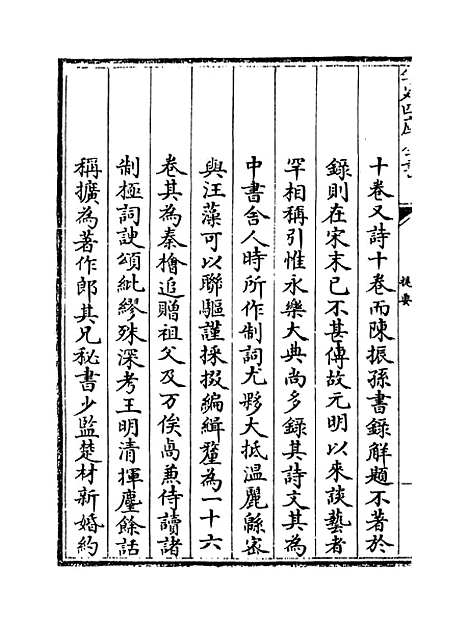 十卷又詩十卷而陳振孫書錄解題不著於
錄則在宋末已不甚傳故元明以來談藝者
罕相稱引惟永樂大典尚多錄其詩文其為
中書舍人時所作制詞尤夥大抵溫麗緜密
與汪藻可以聯驅謹採掇編緝釐為一十六
卷其為秦檜追贈祖父及万俟卨兼侍讀諸
制極詞諛頌紕繆殊深考王明清揮麈餘話
稱擴為著作郎其兄秘書少監楚材新婚約
提要